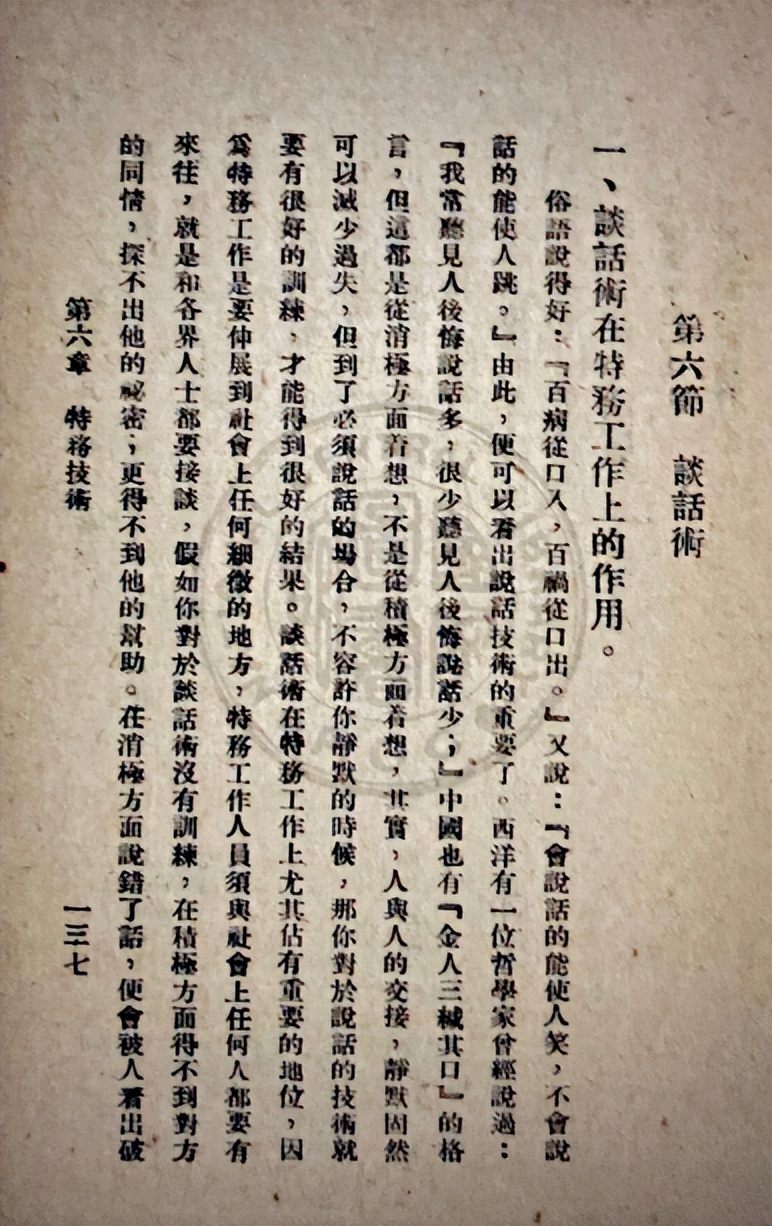 第六節　談話術
一、談話術在特務工作上的作用。
俗語說得好：『百病從口入，百禍從口出。』又說：『會說話的能使人笑，不會說
話的能使人跳。』由此，便可以看出說話技術的重要了。西洋有一位哲學家曾經說過：
『我常聽見人後悔說話多，很少聽見人後悔說話少；』中國也有『金人三緘其口』的格
言，但這都是從消極方面着想，不是從積極方面着想，其實，人與人的交接，靜默固然
可以減少過失，但到了必須說話的場合，不容許你靜默的時候，那你對於說話的技術就
要有很好的訓練，才能得到很好的結果。談話術在特務工作上尤其佔有重要的地位，因
爲特務工作是要伸展到社會上任何細微的地方，特務工作人員須與社會上任何人都要有
來往，就是和各界人士都要接談，假如你對於談話術沒有訓練，在積極方面得不到對方
的同情，探不出他的祕密；更得不到他的幫助。在消極方面說錯了話，便會被人看出破
第六章　特務技術
一三七